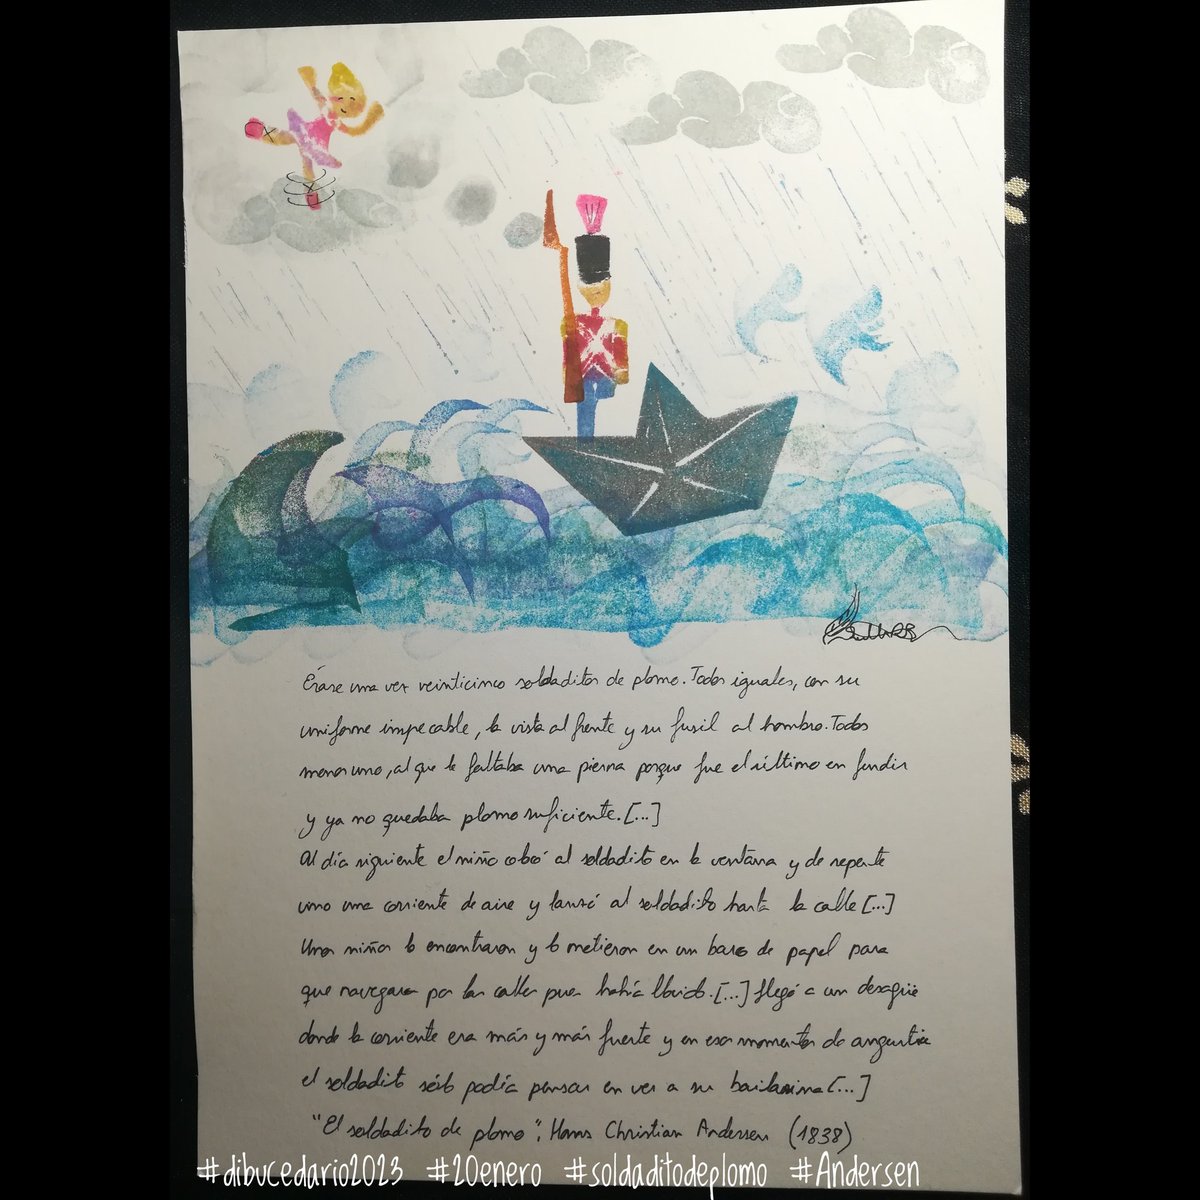 Érase una vez veinticinco soldaditos de plomo. Todos iguales, con su
uniforme impecable, la vista al frente y su fusil al hombro. Todos
menos uno, al que le faltaba una pierna porque fue el último en fundir
y ya no quedaba plomo suficiente. [...]
Al día siguiente el niño colocó al soldadito en la ventana y de repente
vino una corriente de aire y lanzó al soldadito hasta la calle [...]
Unos niños lo encontraron y lo metieron en un barco de papel para
que navegara por las calles pues había llovido. [...] llegó a un desagüe
donde la corriente era más y más fuerte y en esos momentos de angustia
el soldadito sólo podía pensar en ver a su bailarina [...]
"El soldadito de plomo", Hans Christian Andersen (1838)
#dibucedario2023 #20enero #soldaditodeplomo #Andersen